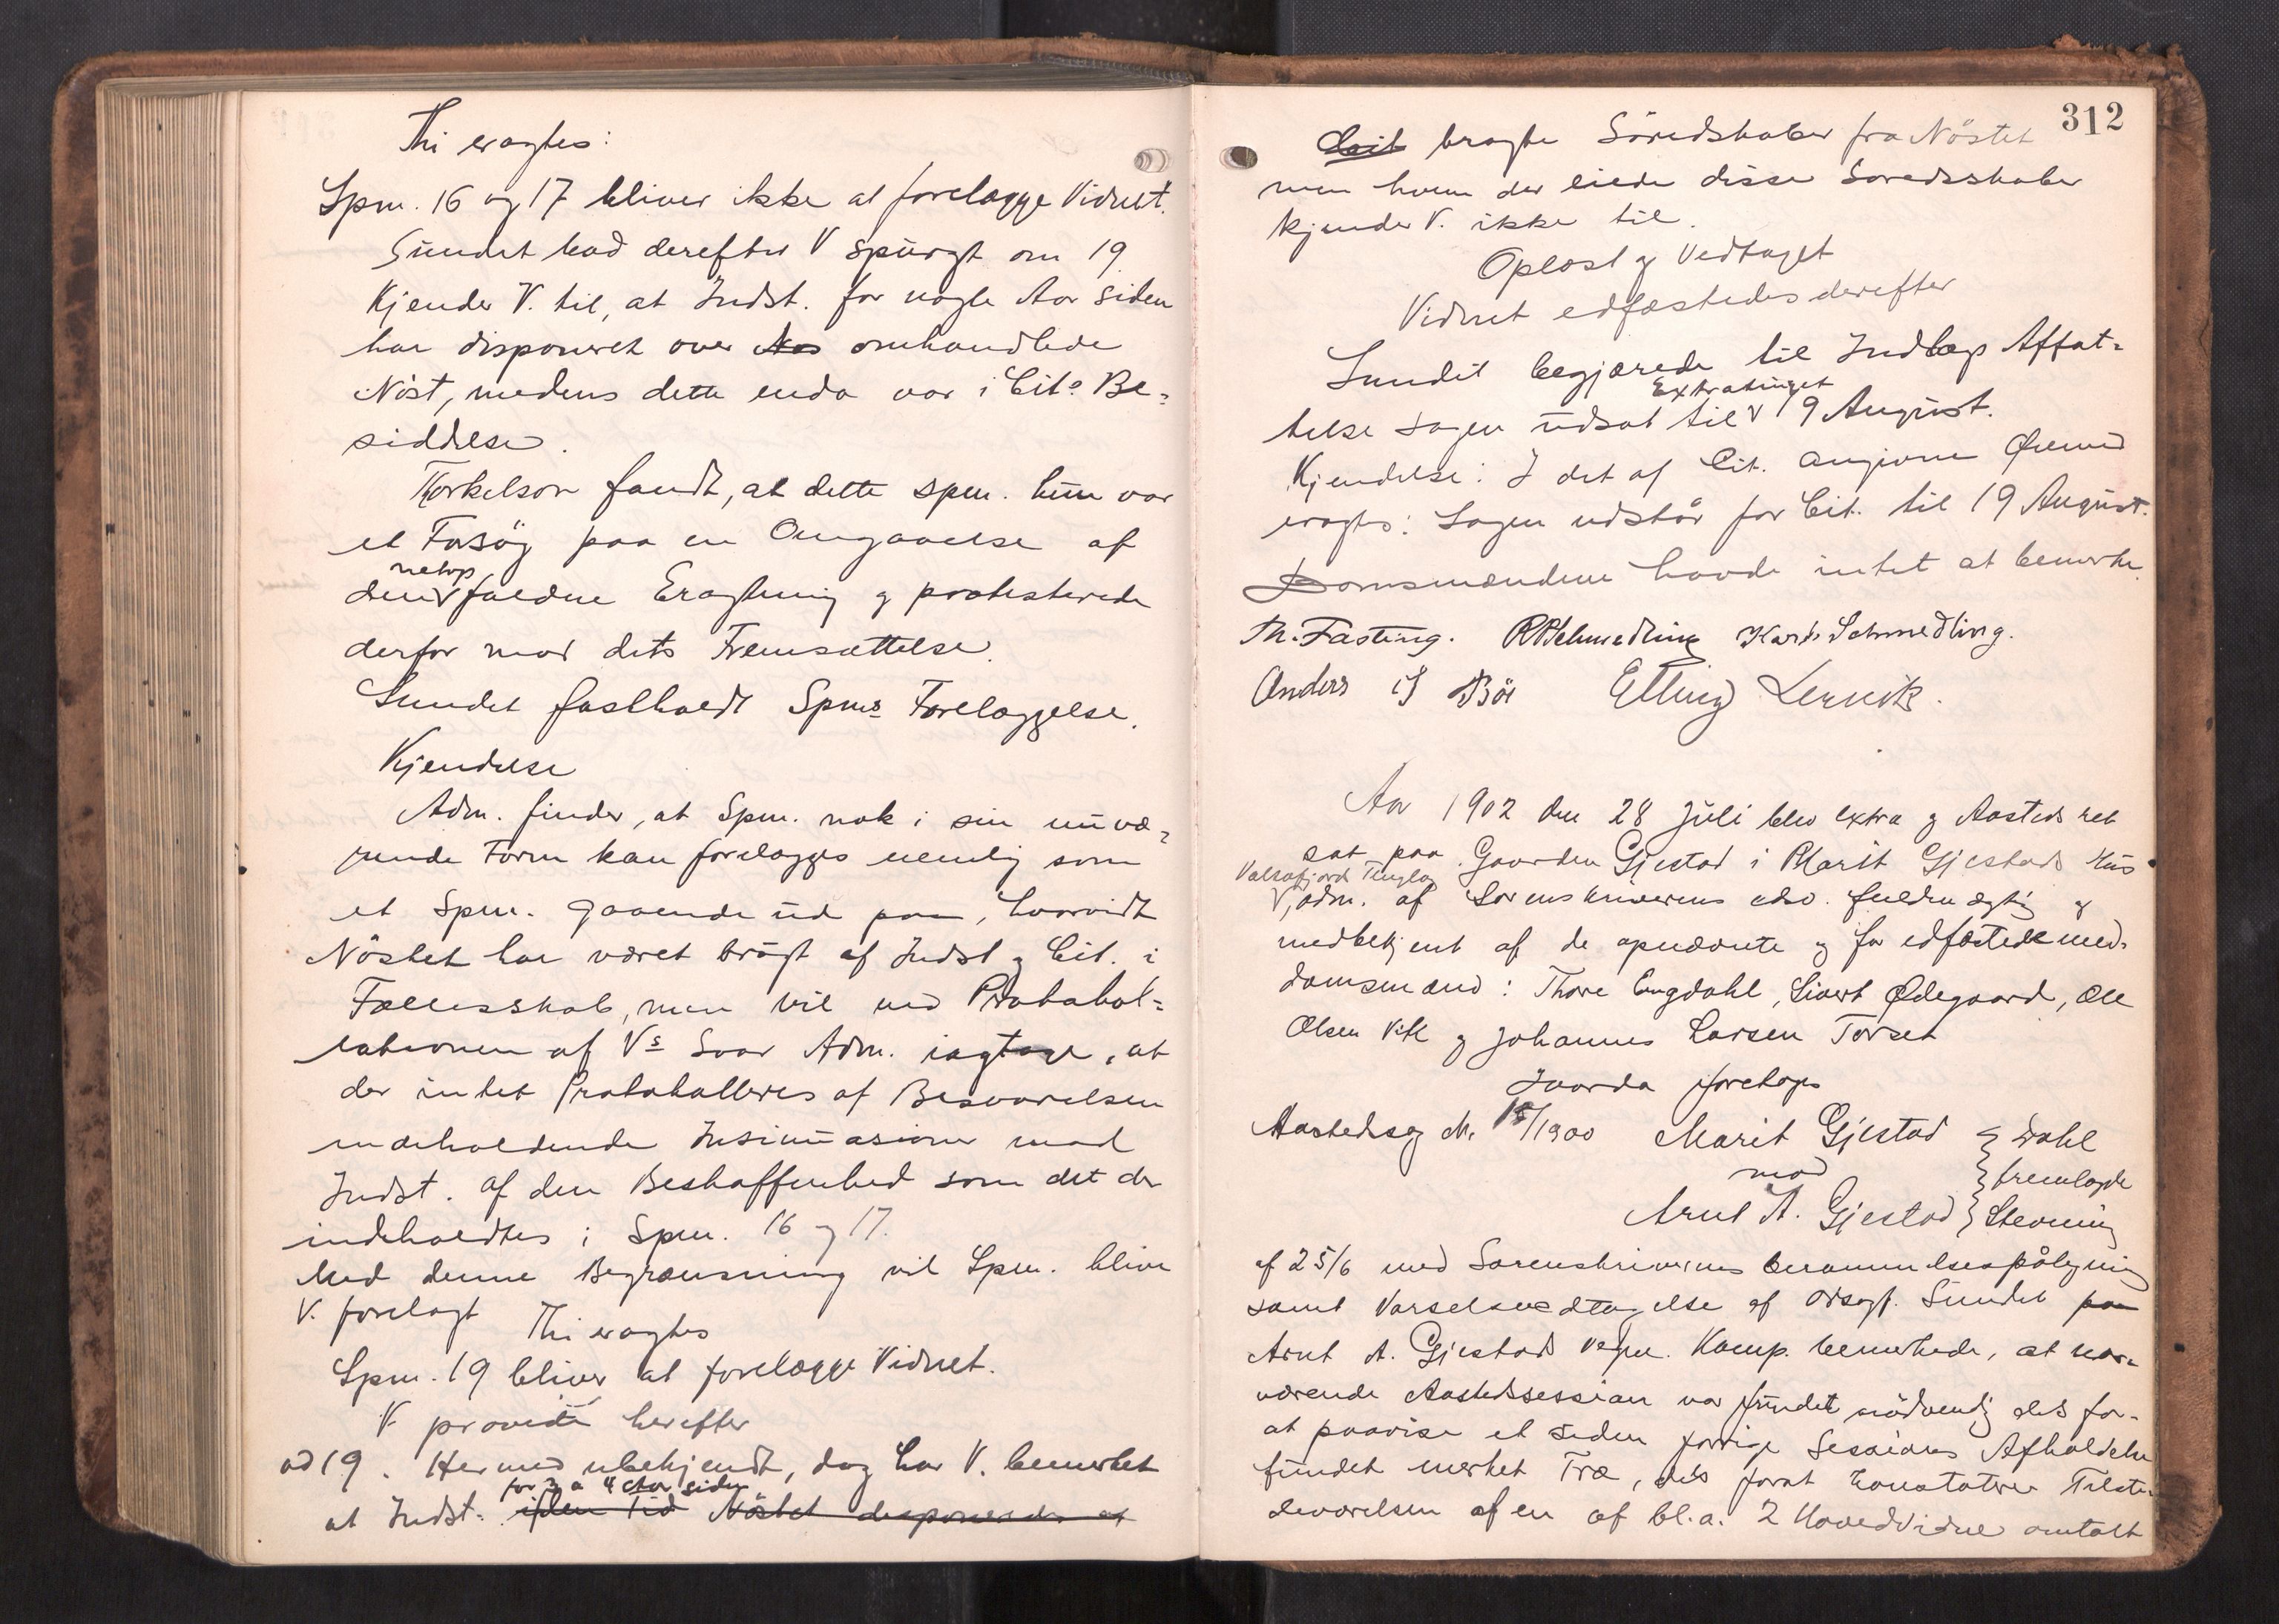 Thi eragtes:
Spm. 16 og 17 bliver ikke at forelægge Vidnet.
Sundet bad derefter V spurgt om 19
Kjender V. til, at Indst. for nogle Aar siden
har disponeret over Nøs omhandlede
Nöst, medens dette enda var i Cits Be=
siddelse.
Thorkelson fandt, at dette spm. kun var
et Forsög paa en Omgaaelse af
netop
den faldne Eragtning og protesterede
derfor mod dets Fremsættelse.
Sundet fastholdt Spms Forelæggelse.
Kjendelse
Adm. finder, at Spm. nok i sin nuvæ=
rende Form kan forelægges nemlig som
et Spm. gaaende ud paa, hvorvidt
Nöstet har været brugt af Indst og Cit. i
Fællesskab, men vil ved Protokol=
lationen af Vs Svar Adm. iagtage, at
der intet Protokolleres af Besvarelsen
indeholdende Insinuasioner mod
Indst. af den Beskaffenhed som det der
indeholdtes i Spm. 16 og 17.
Med denne Begrænsning vil Spm. blive
V. forelagt Thi eragtes
Spm. 19 bliver at forelægge Vidnet.
V. provede herefter
ad 19. Hermed ubekjendt, dog har V. bemerket
for 3 a 4 Aar siden
at Indst. i den Tid Nöstet disponerede at
312
Cit bragte Söredskaber fra Nöstet
men hvem der eiede disse Söredsskaber
kjender V. ikke til.
Oplæst og Vedtaget
Vidnet edfæstedes derefter
Sundet begjærede til Indlægs Affat=
Extratinget
telse Sagen udsat til 19 August.
Kjendelse: I det af Cit. angivne Øiemed
eragtes: Sagen udstår for Cit. til 19 August.
Domsmændene havde intet at bemerke.
Th. Fasting. R Schmedling Karl Schmedling.
Anders iS Bör Elling Lervik.
Aar 1902 den 28 Juli blev extra og Aasteds ret
sat paa Gaarden Gjestad i Marit Gjestads Hus
Valsøfjord Tinglag
adm. af Sorenskriverens edsv. fuldmægtig og
medbetjent af de opnævnte og før edfæstede med=
domsmænd: Thore Engdahl, Sivert Ødegaard, Ole
Olsen Vik og Johannes Larsen Torset
Hvorda foretoges
Aastedssag N. 15/1900 Marit Gjestad } Dahl
mod } fremlagde
Arnt A. Gjestad } Stevning
af 25/6 med Sorenskriverens berammelsespålegning
samt Varselsvedtagelse af Odsagf. Sundet paa
Arnt A. Gjestads vegne. Komp. bemerkede, at nær=
værende Aastedssession var fundet nödvendig dels for
at paavise et siden forrige Sessions Afholdelse
fundet merket Træ, dels forat konstatere Tilste=
deværelsen af en af bl.a. 2 HovedVidne omtalt